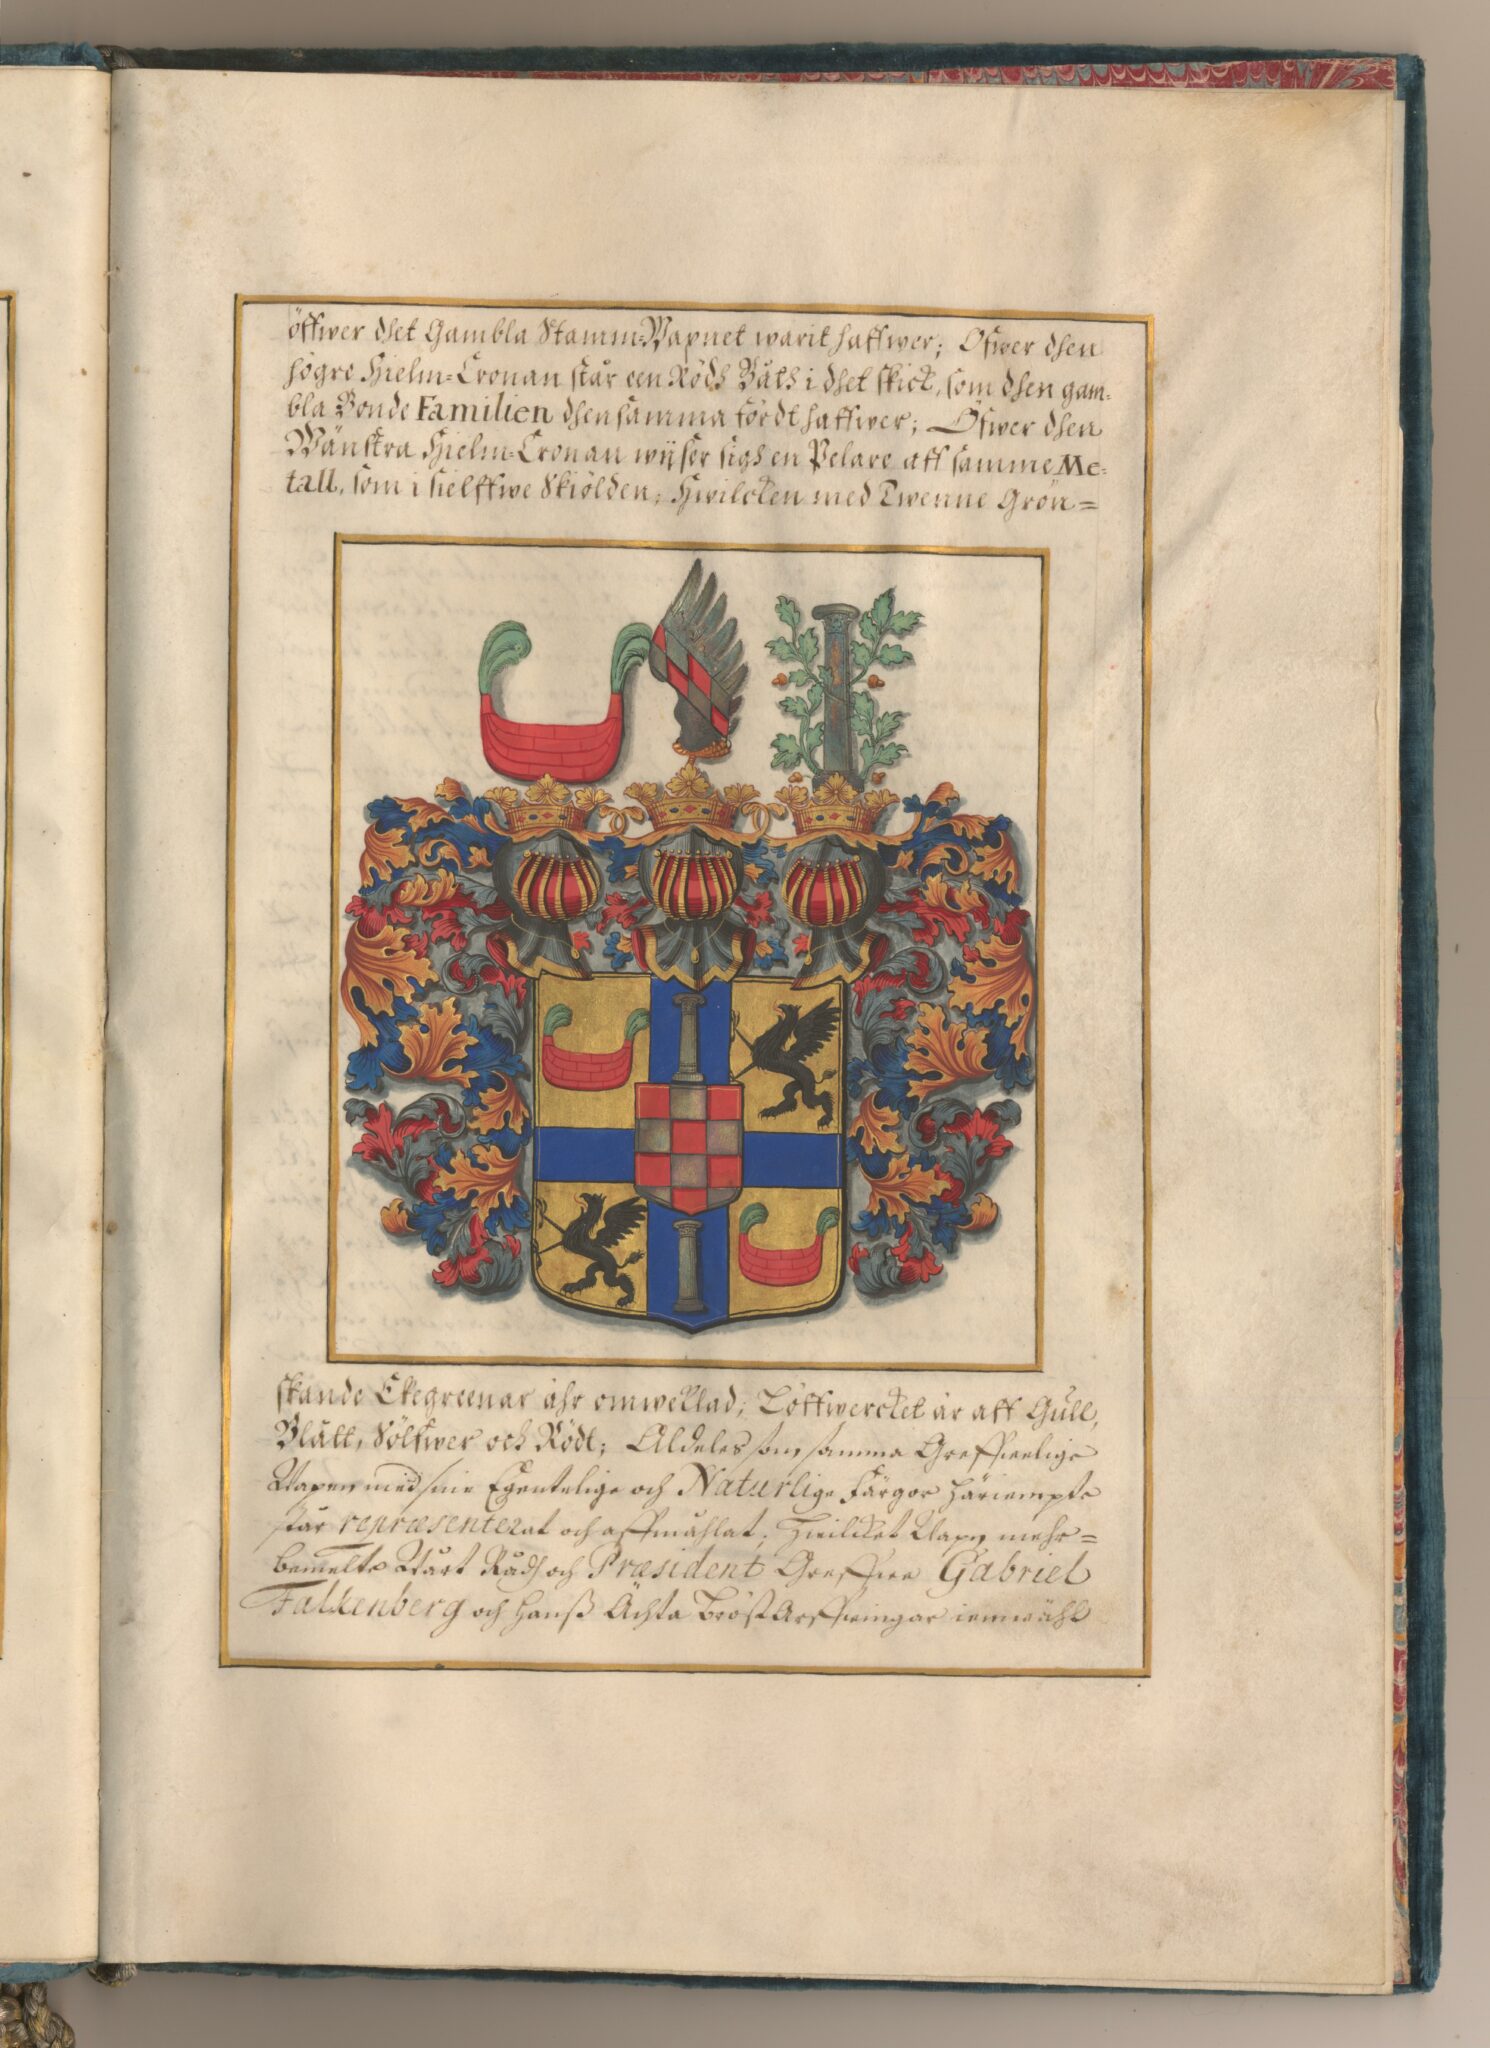 öffwer dhet Gambla Stamm-Wapnet warit haffwer; Öfwer dhen
högre Hielm-Cronan står een Rödh Båth i dhet skick, som dhen gam-
bla Bonde Familien dhensamma fördt haffwer; Öfwer dhen
Wänstra Hielm-Cronan wijser sigh en Pelare aff samme Me-
tall, som i sielffwe Skiölden; Hwilcken med Twenne Grön=
skande Ekegreenar ähr omweklad; Löffwercket är aff Gull,
Blått, Sölfwer och Rödt; Aldeles som samma Greffweelige
Wapen med sine Egentelige och Naturlige Färgor häriempte
står repræsenterat och affmåhlat; Hwilcket Wapn mehr=
bemelte Wårt Rådh och Præsident Greffwe Gabriel
Falkenberg och hanß Ächta Bröst Arffwingar iemwähl